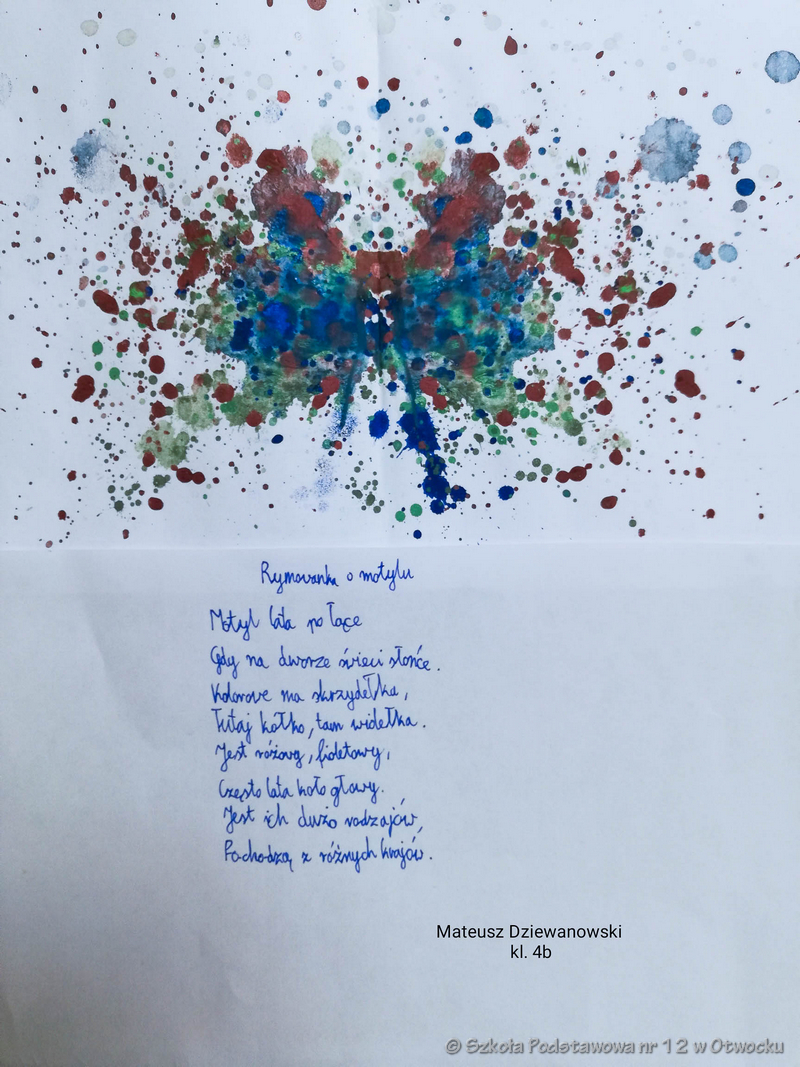 Rymowanka o motylu
Motyl lata po łące
Gdy na dworze świeci słońce.
Kolorowe ma skrzydełka,
Tutaj kółko, tam widełka.
Jest różowy, fioletowy,
Często lata koło głowy.
Jest ich dużo rodzajów,
Pochodzą z różnych krajów.
Mateusz Dziewanowski
kl. 4b
© Szkoła Podstawowa nr 12 w Otwocku